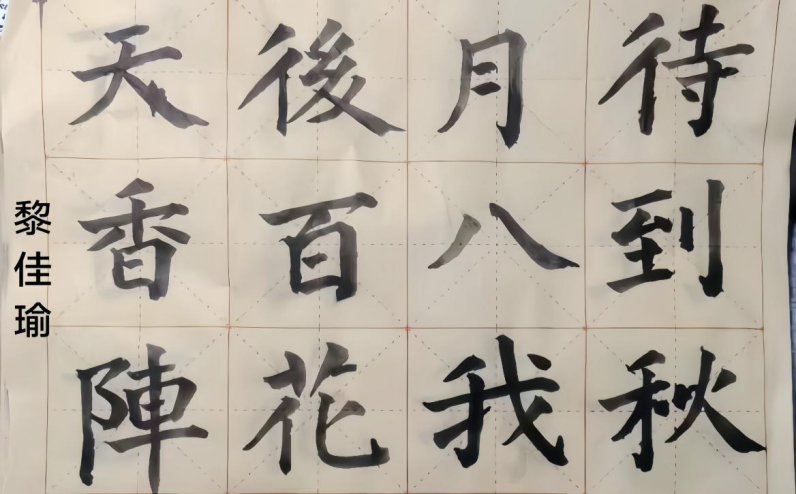 待到秋
月八我
後百花
天香陣
黎佳瑜